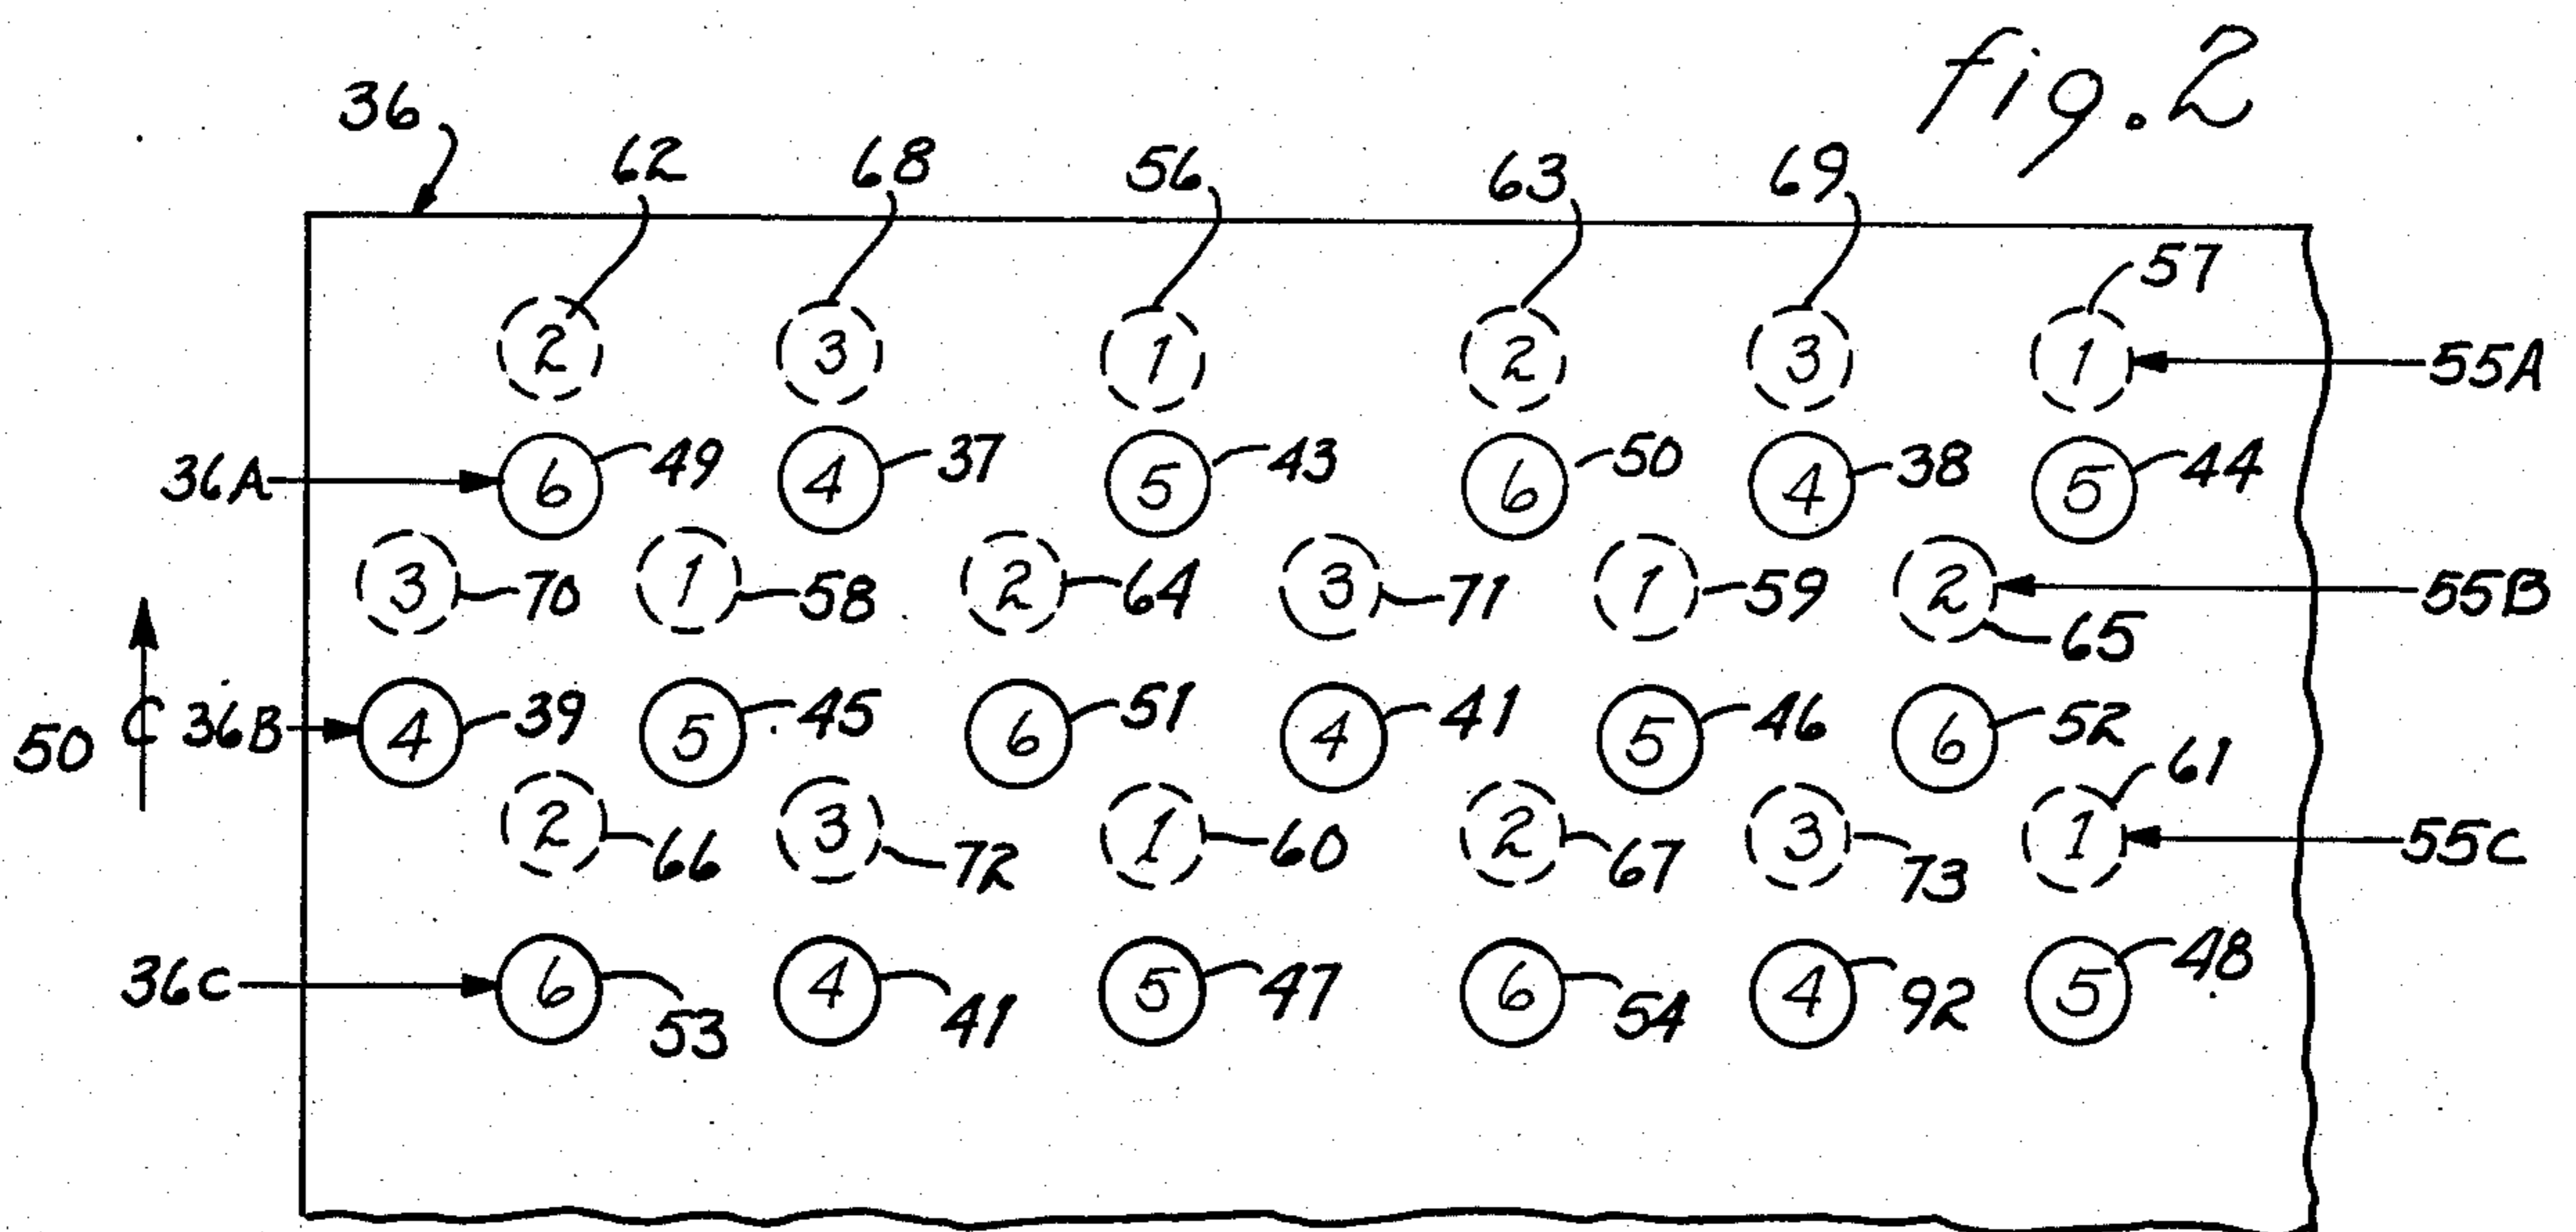 fig.2
36 62 68 56 63 69
57
2 3 1 2 3 1 55A
36A 6 49 4 37 5 43 6 50 4 38 5 44
3 70 1 58 2 64 3 71 1 59 2 65 55B
50 36B 4 39 5 45 6 51 4 41 5 46 6 52
61
2 66 3 72 1 60 2 67 3 73 1 55C
36C 6 53 4 41 5 47 6 54 4 92 5 48